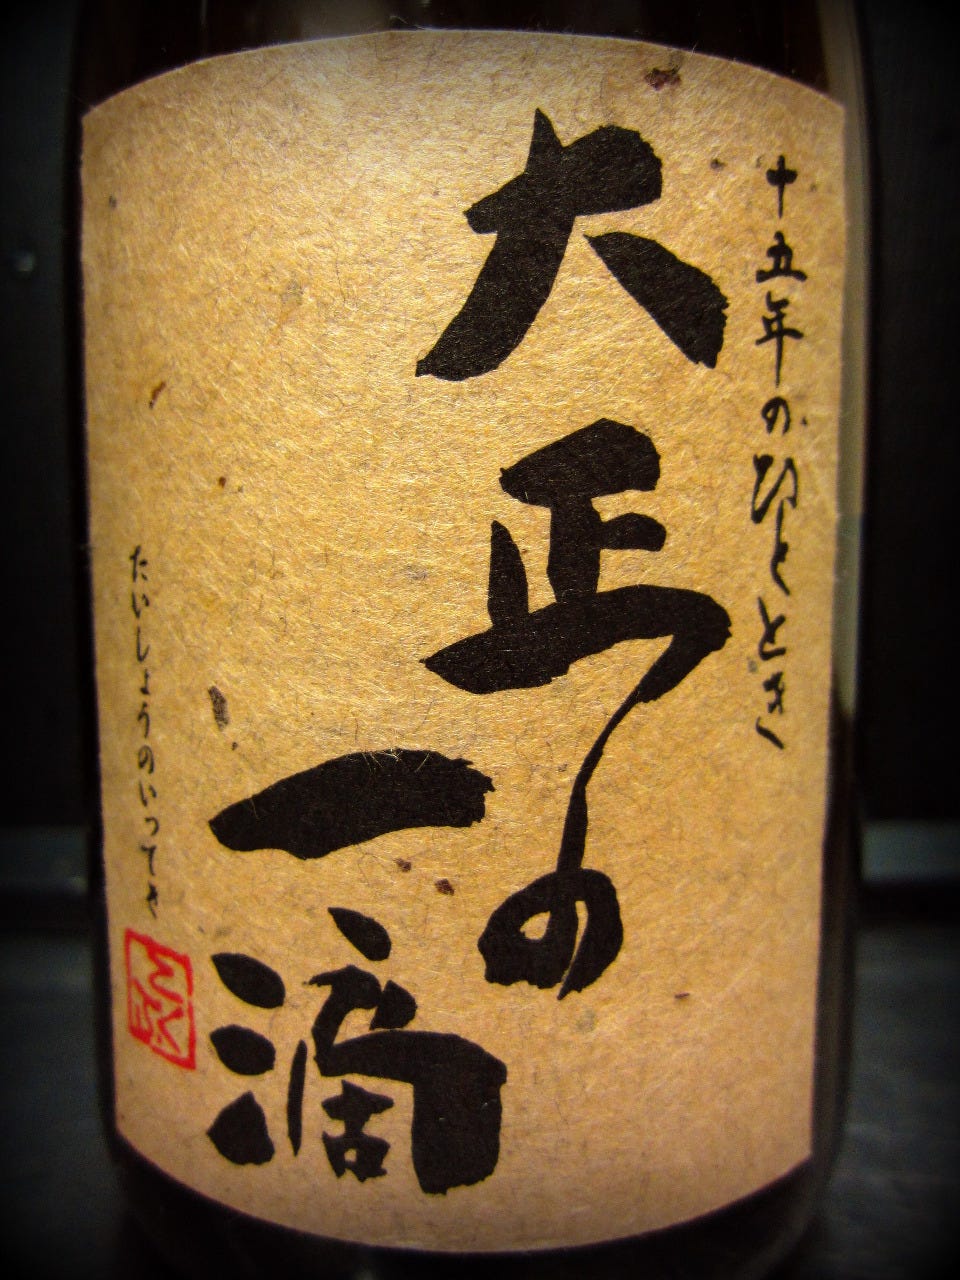 十五年のひととき
大正の
一滴
たいしょうのいってき